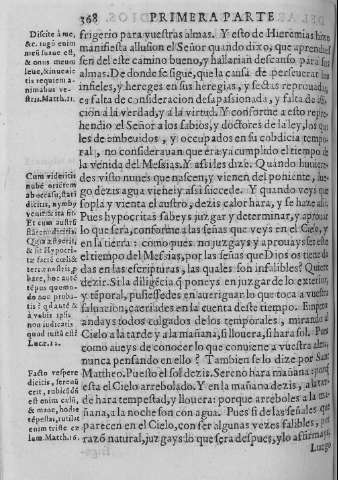 368 PRIMERA PARTE
Discite à me,
&c. iugũ enim
meũ suaue est,
& onus meum
leue, & inuenietis
requiem animabus
vestris. Matth. 11.
Cum videritis
nubẽ oriẽtem
ab occasu, statim
dicitis, nymbus
venit: & ita fit.
Et cum
Luce. 12.
Facto vespere
dicitis, serenũ
erit, rubicũdũ
est enim cælũ,
& mane, hodie
tẽpestas, rutilat
enim triste cælum
Matth. 16.
frigerio para vuestras almas. Y esto de Hieremias hizo
manifiesta allusion el Señor quando dixo, que aprendiessen
del este camino bueno, y hallarian descanso para sus
almas. De donde se sigue, que la causa de perseuerar los
infieles, y hereges en sus heregias, y sectas reprouadas,
es falta de consideracion desapassionada, y falta de aficion
à la verdad, y a la virtud. Y conforme a esto reprehendio
el Señor a los sabios, y doctores de la ley, los quales
de embeuidos, y occupados en su cobdicia temporal,
no considerauan que era ya cumplido el tiempo de
la venida del Messias. Y assi les dize. Quando huuieredes
visto nuues que nascen, y vienen del poniente, luego
dezis agua viene, y assi succede. Y quando veys que
sopla y vienta el austro, dezis calor hara, y se haze assi.
Pues hypocritas sabeys juzgar y determinar, y aprouar
lo que sera, conforme a las señas que veys en el Cielo, y
en la tierra: como pues no juzgays y aprouays este
el tiempo del Messias, por las señas que Dios os tiene dadas
en las escripturas, las quales son infalibles? Quiere
dezir. Si la diligẽcia q̃ poneys en juzgar de lo exterior,
y tẽporal, pusiessedes en aueriguar lo que toca a vuestra
saluacion, caeriades en la cuenta deste tiempo. Empero
andays todos colgados de los temporales, mirando al
Cielo a la tarde y a la mañana, si llouera, si hara sol. Pues
como aueys de conocer lo que conuiene a vuestra alma,
nunca pensando en ello? Tambien se lo dize por San
Mattheo. Puesto el sol dezis. Sereno hara mañana: porque
esta el Cielo arrebolado. Y en la mañana dezis, a la tarde
hara tempestad, y llouera: porque arreboles a la mañana,
a la noche son con agua. Pues si de las señales que
parecen en el Cielo, con ser algunas vezes falibles, por
razõ natural, juzgays lo que sera despues, y lo affirmays,
Luego